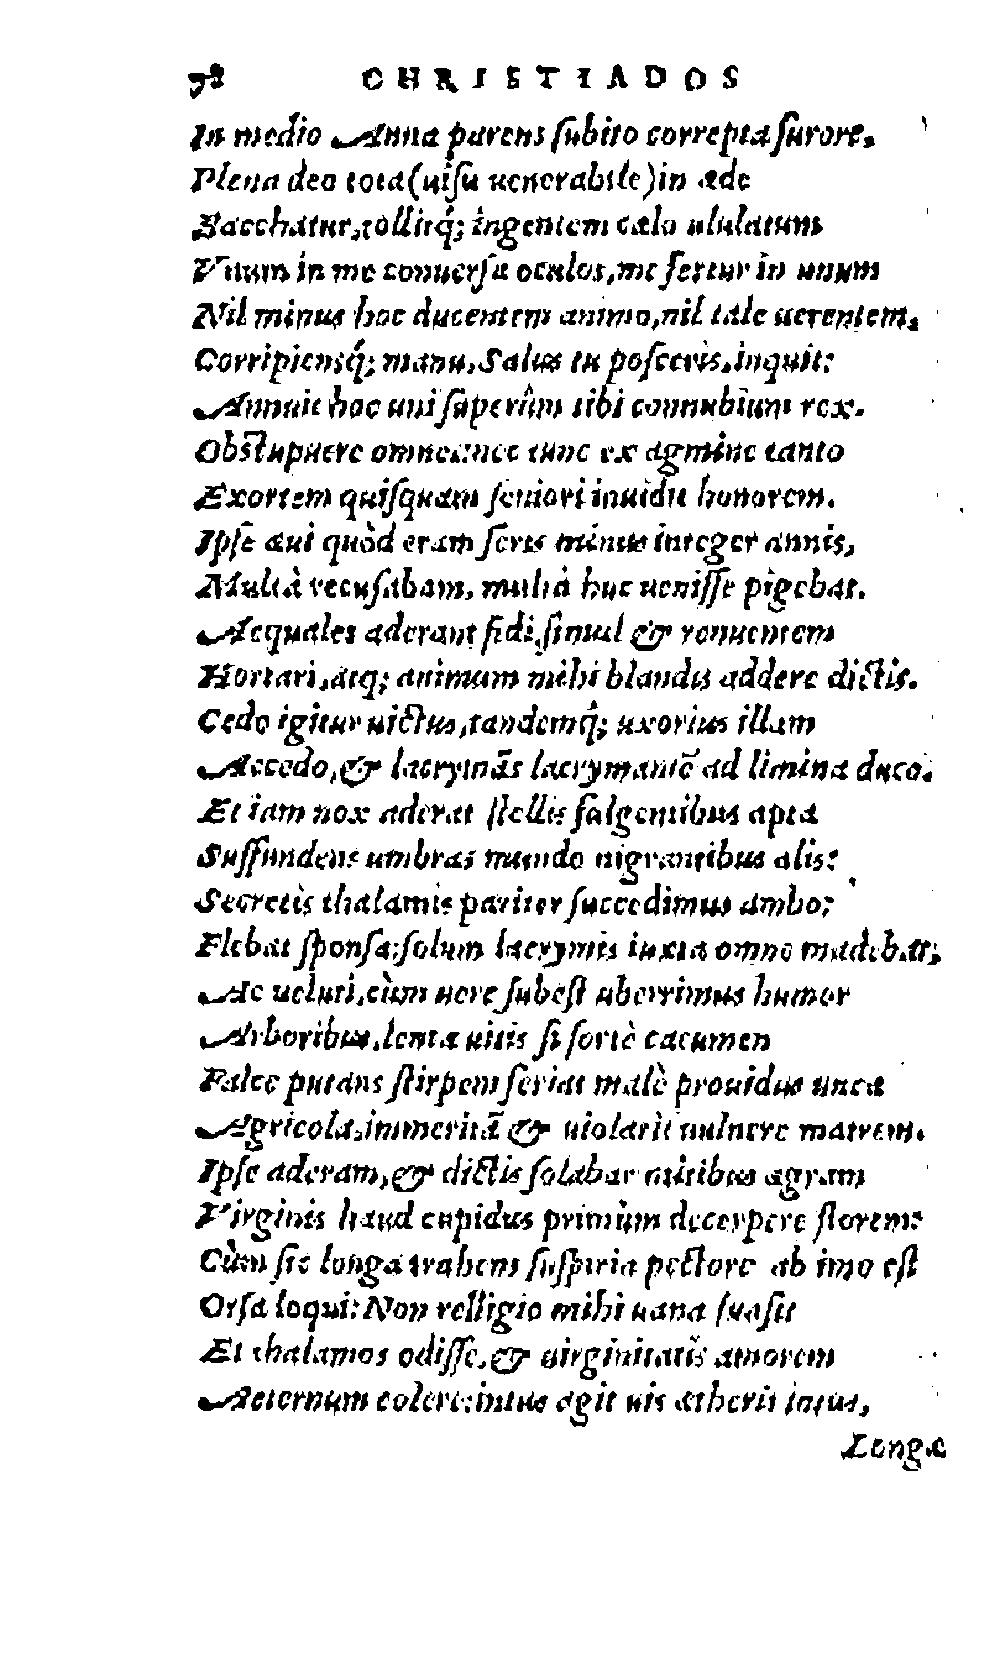 78 CHRISTIADOS
In medio Anna parens ſubito correpta furore,
Plena deo tota (uiſu uenerabile) in æde
Bacchatur, tollitq́; ingentem cælo ululatum
Vnum in me conuerſa oculos, me fertur in unum
Nil minus hoc ducentem animo, nil tale uerentem,
Corripiensq́; manu, Salus tu poſceris, inquit:
Annuit hoc uni ſuperûm tibi connubium rex.
Obſtupuere omnes: nec tunc ex agmine tanto
Exortem quiſquam ſeniori inuidit honorem.
Ipſe aui quòd eram ſeris minus integer annis,
Multà recuſabam, multà huc ueniſſe pigebat.
Aequales aderant fidi, ſimul & renuentem
Hortari, atq; animum mihi blandis addere dictis.
Cedo igitur uictus, tandemq́; uxorius illam
Accedo, & lacrymãs lacrymantẽ ad limina duco.
Et iam nox aderat ſtellis fulgentibus apta
Suffundens umbras mundo nigrantibus alis:
Secretis thalamis pariter ſuccedimus ambo;
Flebat ſponſa; ſolum lacrymis iuxta omne madebat;
Ac ueluti, cùm uere ſubeſt uberrimus humor
Arboribus, lenta uitis ſi fortè cacumen
Falce putans ſtirpem feriat malè prouidus unca
Agricola, immeritã & uiolarit uulnere matrem.
Ipſe aderam, & dictis ſolabar mitibus ægram
Virginis haud cupidus primùm decerpere florem:
Cùm ſic longa trahens ſuſpiria pectore ab imo eſt
Orſa loqui: Non relligio mihi uana ſuaſit
Et thalamos odiſſe, & uirginitatis amorem
Aeternum colere: intus agit uis ætheris intus,
Longæ